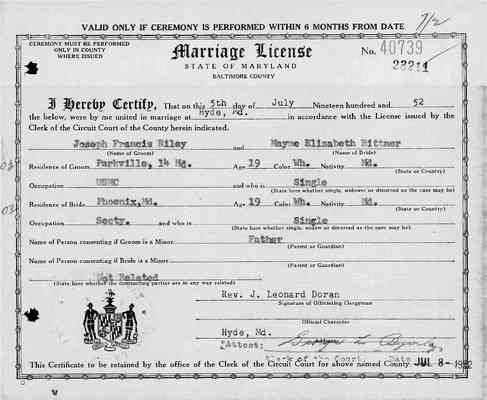 VALID ONLY IF CEREMONY IS PERFORMED WITHIN 6 MONTHS FROM DATE
7/2
CEREMONY MUST BE PERFORMED
ONLY IN COUNTY
WHERE ISSUED
Marriage License
STATE OF MARYLAND
BALTIMORE COUNTY
No. 40739
I Hereby Certify, That on this 5th day of July Nineteen hundred and 52
the below, were by me united in marriage at Hyde, Md. in accordance with the License issued by the
Clerk of the Circuit Court of the County herein indicated.
Joseph Francis Riley and Mayme Elizabeth Bittner
(Name of Groom) (Name of Bride)
Residence of Groom Parkville, 14 Md. Age 19 Color Wh. Nativity Md.
(State or Country)
Occupation USMC and who is Single
(State here whether single, widower or divorced as the case may be)
Residence of Bride Phoenix, Md. Age 19 Color Wh. Nativity Md.
(State or Country)
Occupation Secty. and who is Single
(State here whether single, widow or divorced as the case may be)
Name of Person consenting if Groom is a Minor Father
(Parent or Guardian)
Name of Person consenting if Bride is a Minor
(Parent or Guardian)
Not Related
(State here whether the contracting parties are in any way related)
Rev. J. Leonard Doran
Signature of Officiating Clergyman
Official Character
Hyde, Md.
Attest:
Clerk of the Court. Date JUL 8- 1952
This Certificate to be retained by the office of the Clerk of the Circuit Court for above named County